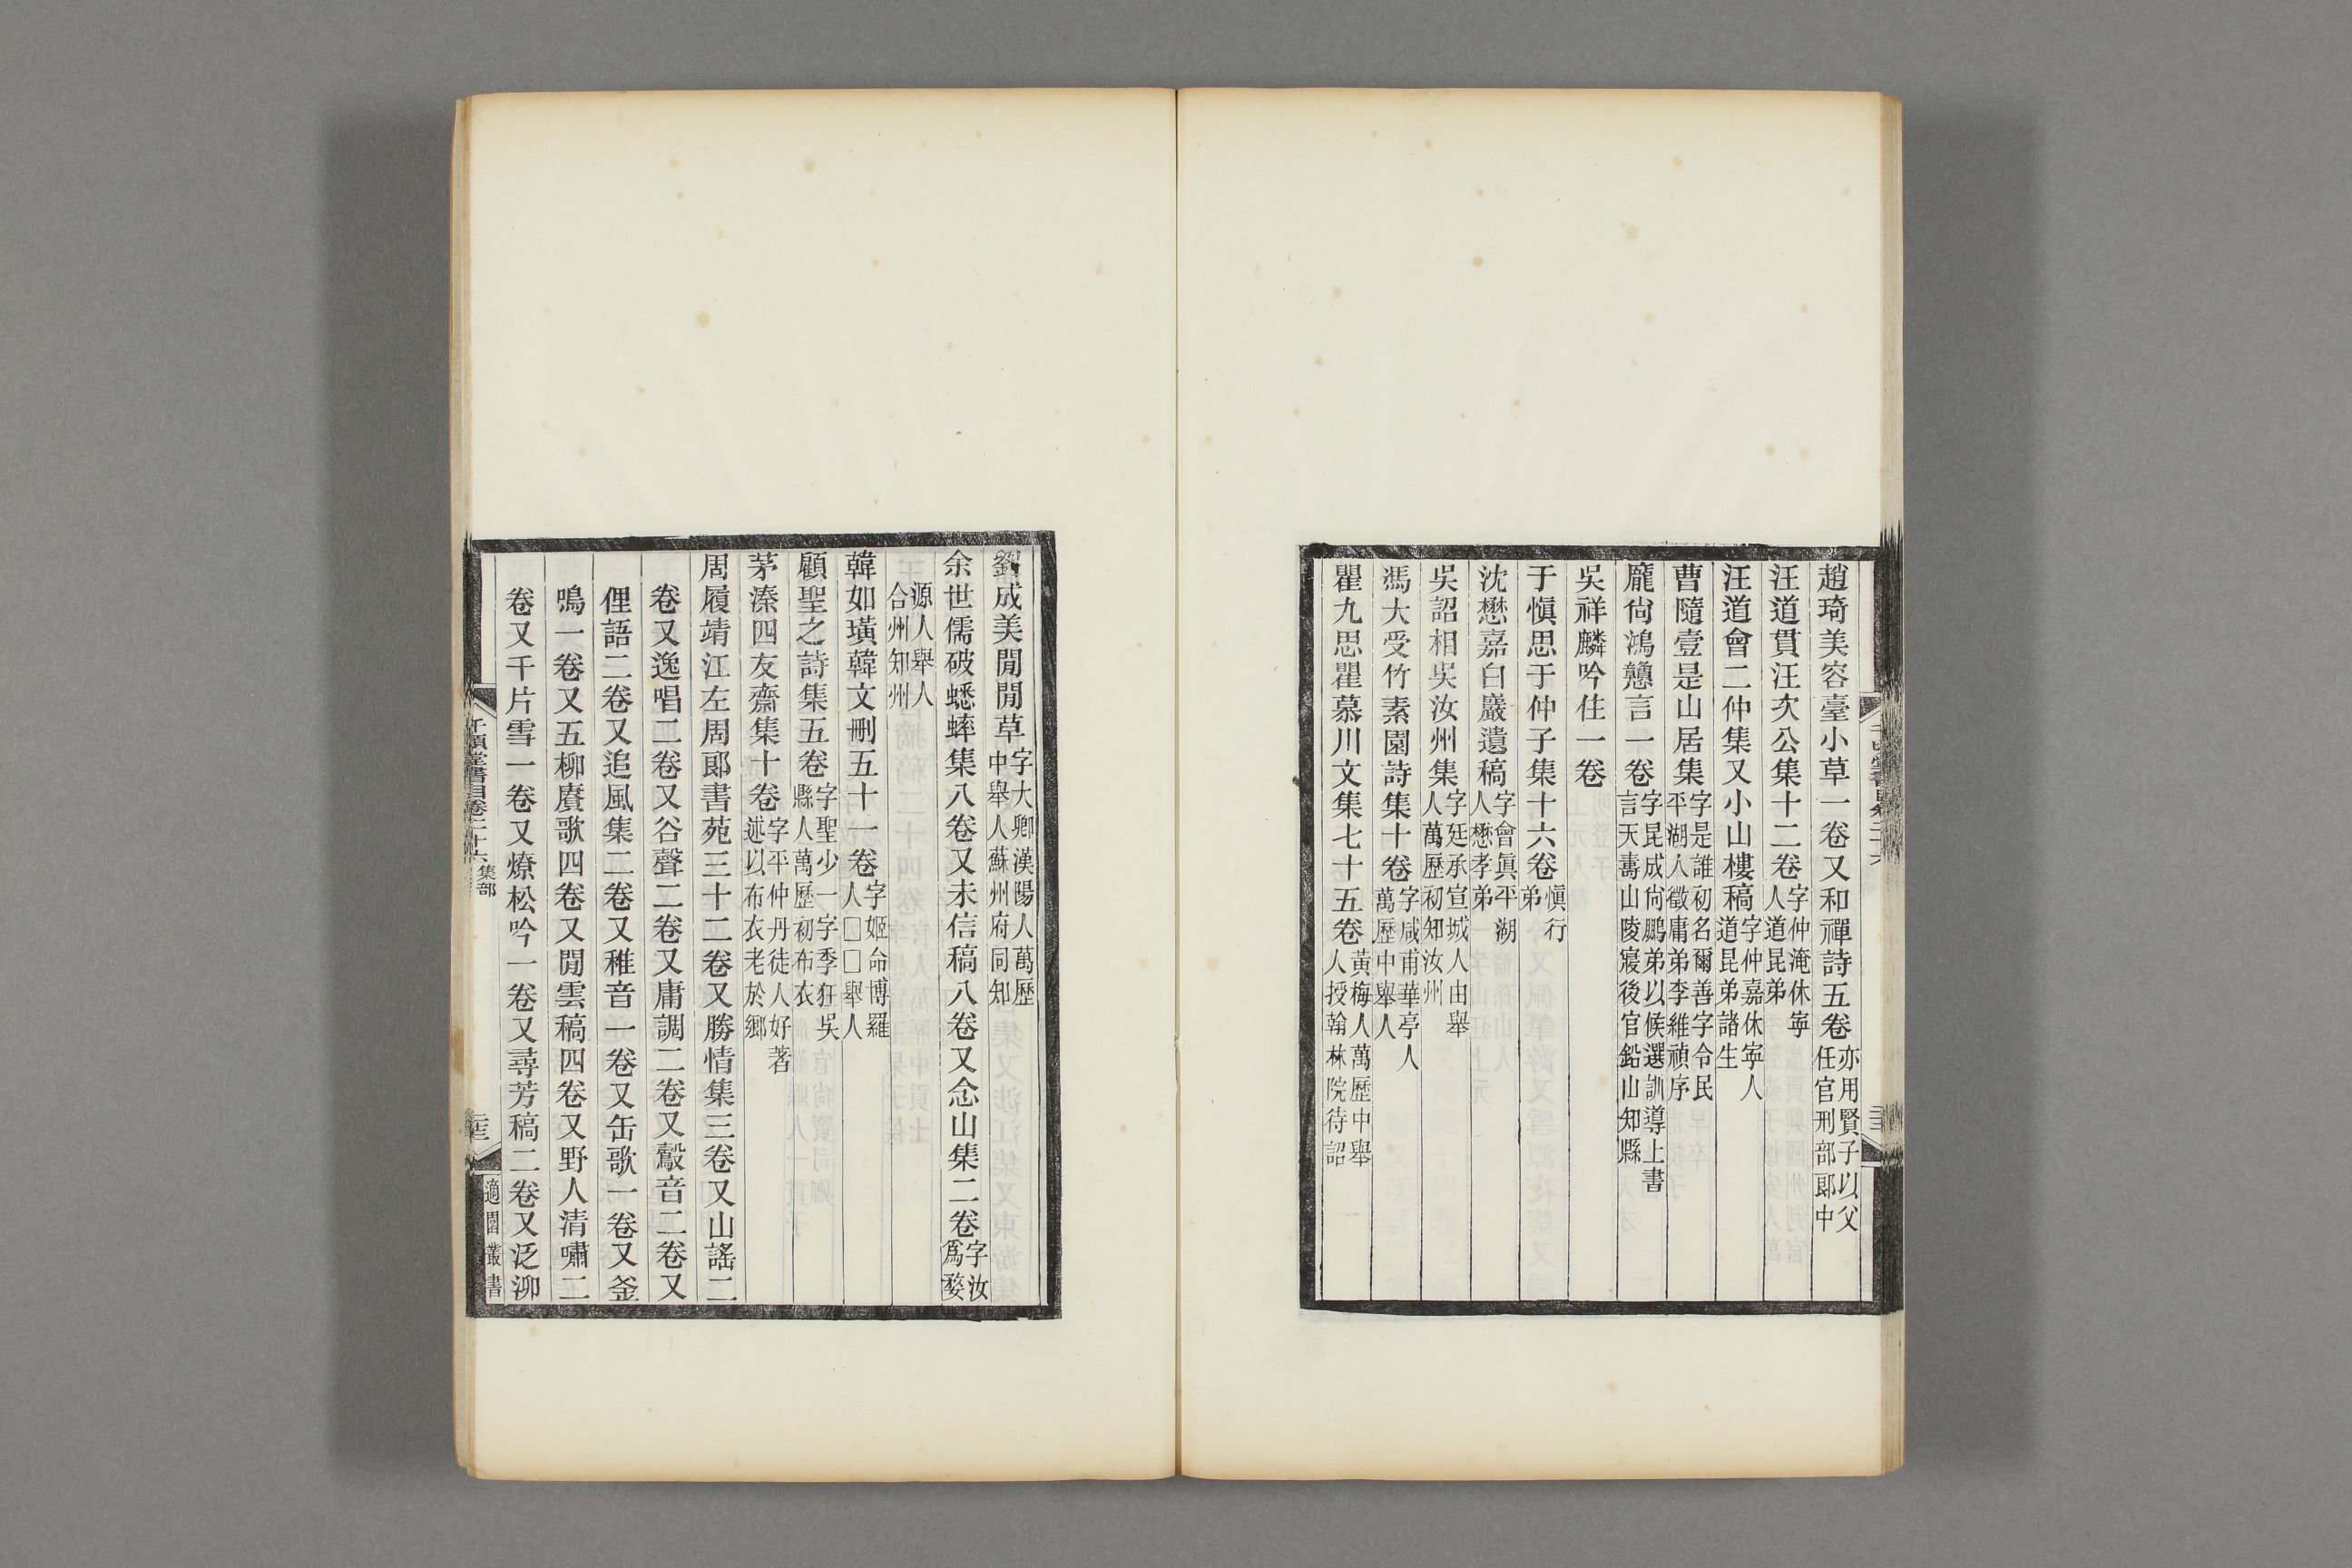 趙琦美容臺小草一卷又和禪詩五卷亦用賢子以父任官刑部郎中
汪道貫汪次公集十二卷字仲淹休寧人道昆弟
汪道會二仲集又小山樓稿字仲嘉休寧人道昆弟諸生
曹隨壹是山居集字是誰初名爾善字令民平湖人徵庸弟李維禎序
龐尙鴻戇言一卷字昆成尙鵬弟以候選訓導上書言天壽山陵寢後官鉛山知縣
吳祥麟吟住一卷
于愼思于仲子集十六卷愼行弟
沈懋嘉白巖遺稿字會眞平湖人懋孝弟
吳詔相吳汝州集字廷承宣城人由舉人萬歷初知汝州
馮大受竹素園詩集十卷字咸甫華亭人萬歷中舉人
瞿九思瞿慕川文集七十五卷黃梅人萬歷中舉人授翰林院待詔
劉成美閒閒草字大卿漢陽人萬歷中舉人蘇州府同知
余世儒破蟋蟀集八卷又未信稿八卷又念山集二卷字汝爲婺
源人舉人合州知州
韓如璜韓文刪五十一卷字姬命博羅人□□舉人
顧聖之詩集五卷字聖少一字季狂吳縣人萬歷初布衣
茅溱四友齋集十卷字平仲丹徒人好著述以布衣老於鄉
周履靖江左周郎書苑三十二卷又勝情集三卷又山謠二
卷又逸唱二卷又谷聲二卷又庸調二卷又鷇音二卷又
俚語二卷又追風集二卷又稚音一卷又缶歌一卷又釜
鳴一卷又五柳賡歌四卷又閒雲稿四卷又野人清嘯二
卷又千片雪一卷又燎松吟一卷又尋芳稿二卷又泛泖
千頃堂書目卷二十六 集部
適園叢書